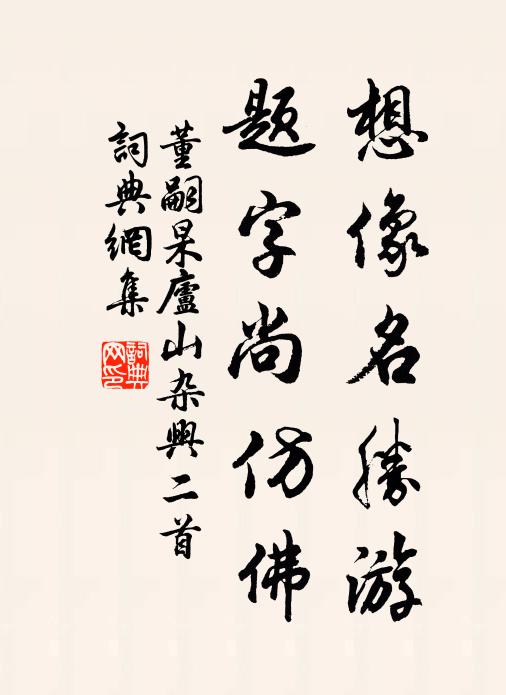 想像名勝游
題字尚仿佛
董嗣杲廬山杂興二首
詞典網集
詞典网印